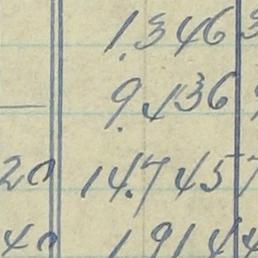 1.346 3
— 9.436 9
20 14.7 457
40 1914 4